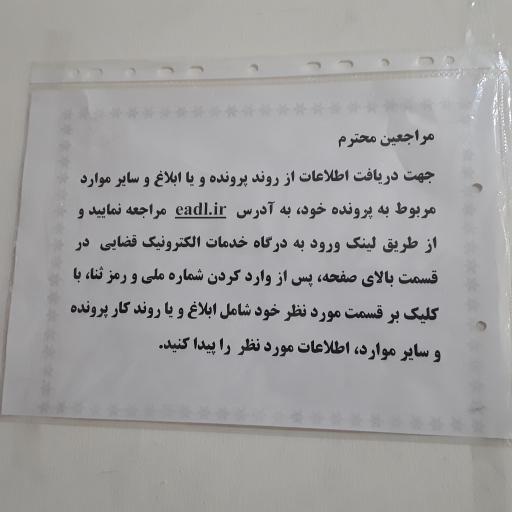 مراجعین محترم
جهت دریافت اطلاعات از روند پرونده و یا ابلاغ و سایر موارد
مربوط به پرونده خود، به آدرس eadl.ir مراجعه نمایید و
از طریق لینک ورود به درگاه خدمات الکترونیک قضایی در
قسمت بالای صفحه، پس از وارد کردن شماره ملی و رمز ثنا، با
کلیک بر قسمت مورد نظر خود شامل ابلاغ و یا روند کار پرونده
و سایر موارد، اطلاعات مورد نظر را پیدا کنید.